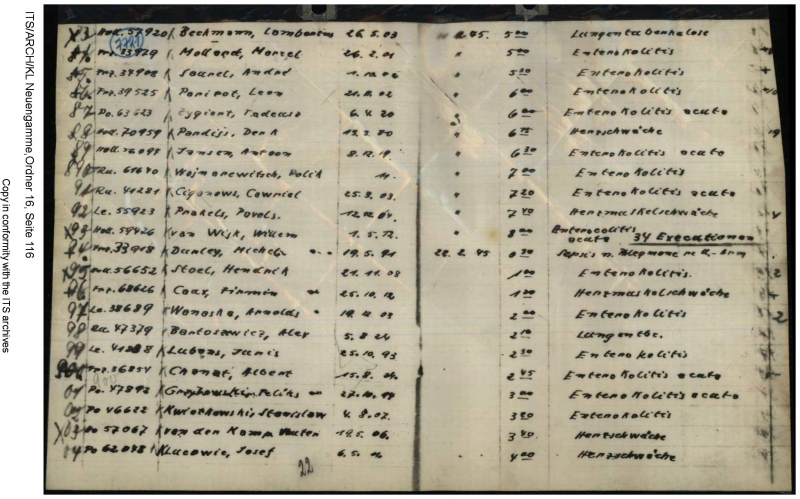 ITS/ARCH/KL Neuengamme, Ordner 16, Seite 116
Copy in conformity with the ITS archives
X3 Holl. 57920 Beckmann, Lambertus 26.5.03 2.45. 5 00 Lungentuberkulose
(7221)
84 Frz. 33929 Mollard, Marcel 26.2.01 " 5 00 Enterokolitis
85 Frz. 39908 André 1.10.06 " 5 30 Enterokolitis
86 Frz. 39525 Leon 21.8.02 " 6 00 Enterokolitis
87 Po. 63623 Zygiont, Tadeusz 6.4.20 6 00 Enterokolitis acuta
88 Holl. 70959 Pandijt, Derk " 6 15 Herzschwäche 19
89 Holl. Jansen, Antoon 8.12.19. " 6 30 Enterokolitis acuta
Ru. 61640 Wojmarewitsch, 11. " 7 00 Enterokolitis
91 Ru. 40281 25.3.03. " 7 20 Enterokolitis acuta
92 Le. 55923 Prokels, Povels. 12.12.04. " 7 40 Herzmuskelschwäche
X93 Holl. 59426 van Wijk, Willem 1.5.12. " 8 00 Enterocolitis
acuta 34 Executionen
94 Frz. 33948 Danley, Michel 19.5.91 22.2.45 0 30 Sepsis n. Phlegmone
X95 Holl. 56652 Stoel, Hendrik 21.11.08 1 00 Enterokolitis. 2
96 Frz. 68626 Coax, Firmin 25.10.12 1 20 Herzmuskelschwäche
97 Le. 38689 Wanaska, Arnolds 19.12.03 2 00 Enterokolitis 2
98 Ru. 47379 Bartoszewicz, Alex 5.8.24 2 10 Lungentbc.
99 Le. 41288 Lubans, Janis 25.10.93 2 30 Enterokolitis
Frz. 36854 Chanat, Albert 15.8. 2 45 Enterokolitis acuta
01 Po. 47893 Feliks 27.10.19 3 00 Enterokolitis acuta
Po 46622 Kwiatkowski, Stanislaw 4.8.07. 3 20 Enterokolitis
X03 57067 van den Kamp 19.5.06. 3 40. Herzschwäche
04 Po 62048 Klucowic, Josef 6.5. 4 00 Herzschwäche
22